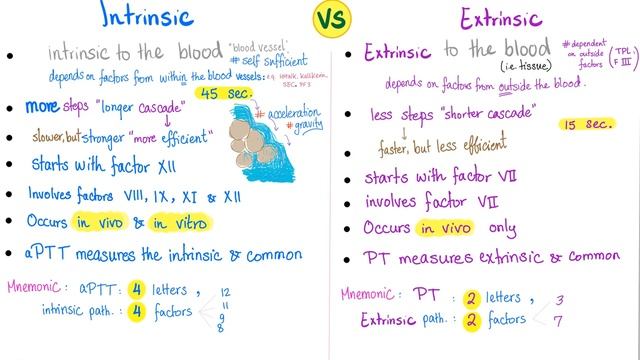 Intrinsic
VS
Extrinsic
intrinsic to the blood "blood vessel".
# self sufficient
depends on factors from within the blood vessels: e.g. HMWK, kallikrein,
45 sec.
more steps "longer cascade"
# acceleration
# gravity
slower, but stronger "more efficient"
starts with factor XII
Involves factors VIII, IX, XI & XII
Occurs in vivo & in vitro
aPTT measures the intrinsic & common
Mnemonic: aPTT: 4 letters, 12
11
intrinsic path.: 4 factors
9
8
Extrinsic to the blood
(i.e. tissue)
# dependent
on outside
factors
(TPL:
F III)
depends on factors from outside the blood.
less steps "shorter cascade"
15 sec.
faster, but less efficient
starts with factor VII
involves factor VII
Occurs in vivo only
PT measures extrinsic & common
Mnemonic: PT : 2 letters, 3
Extrinsic path.: 2 factors 7